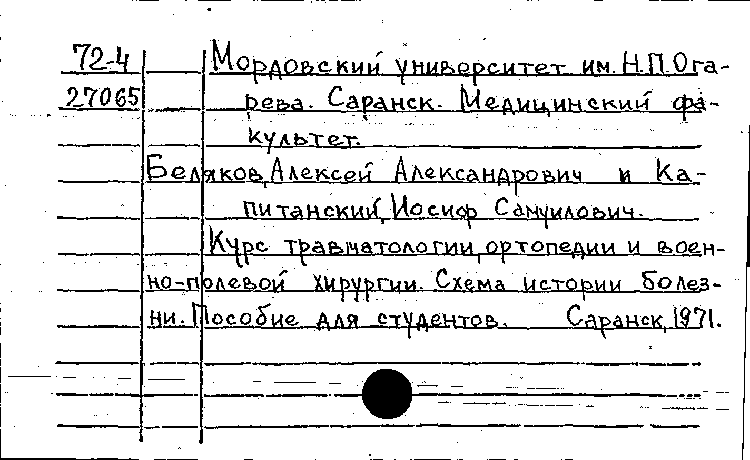 72-4 Мордовский университет им. Н.П.Ога-
27065 рева. Саранск. Медицинский фа-
культет.
Беляков, Алексей Александрович и Ка-
питанский, Иосиф Самуилович.
Курс травматологии, ортопедии и воен-
но-полевой хирургии. Схема истории болез-
ни. Пособие для студентов. Саранск, 1971.